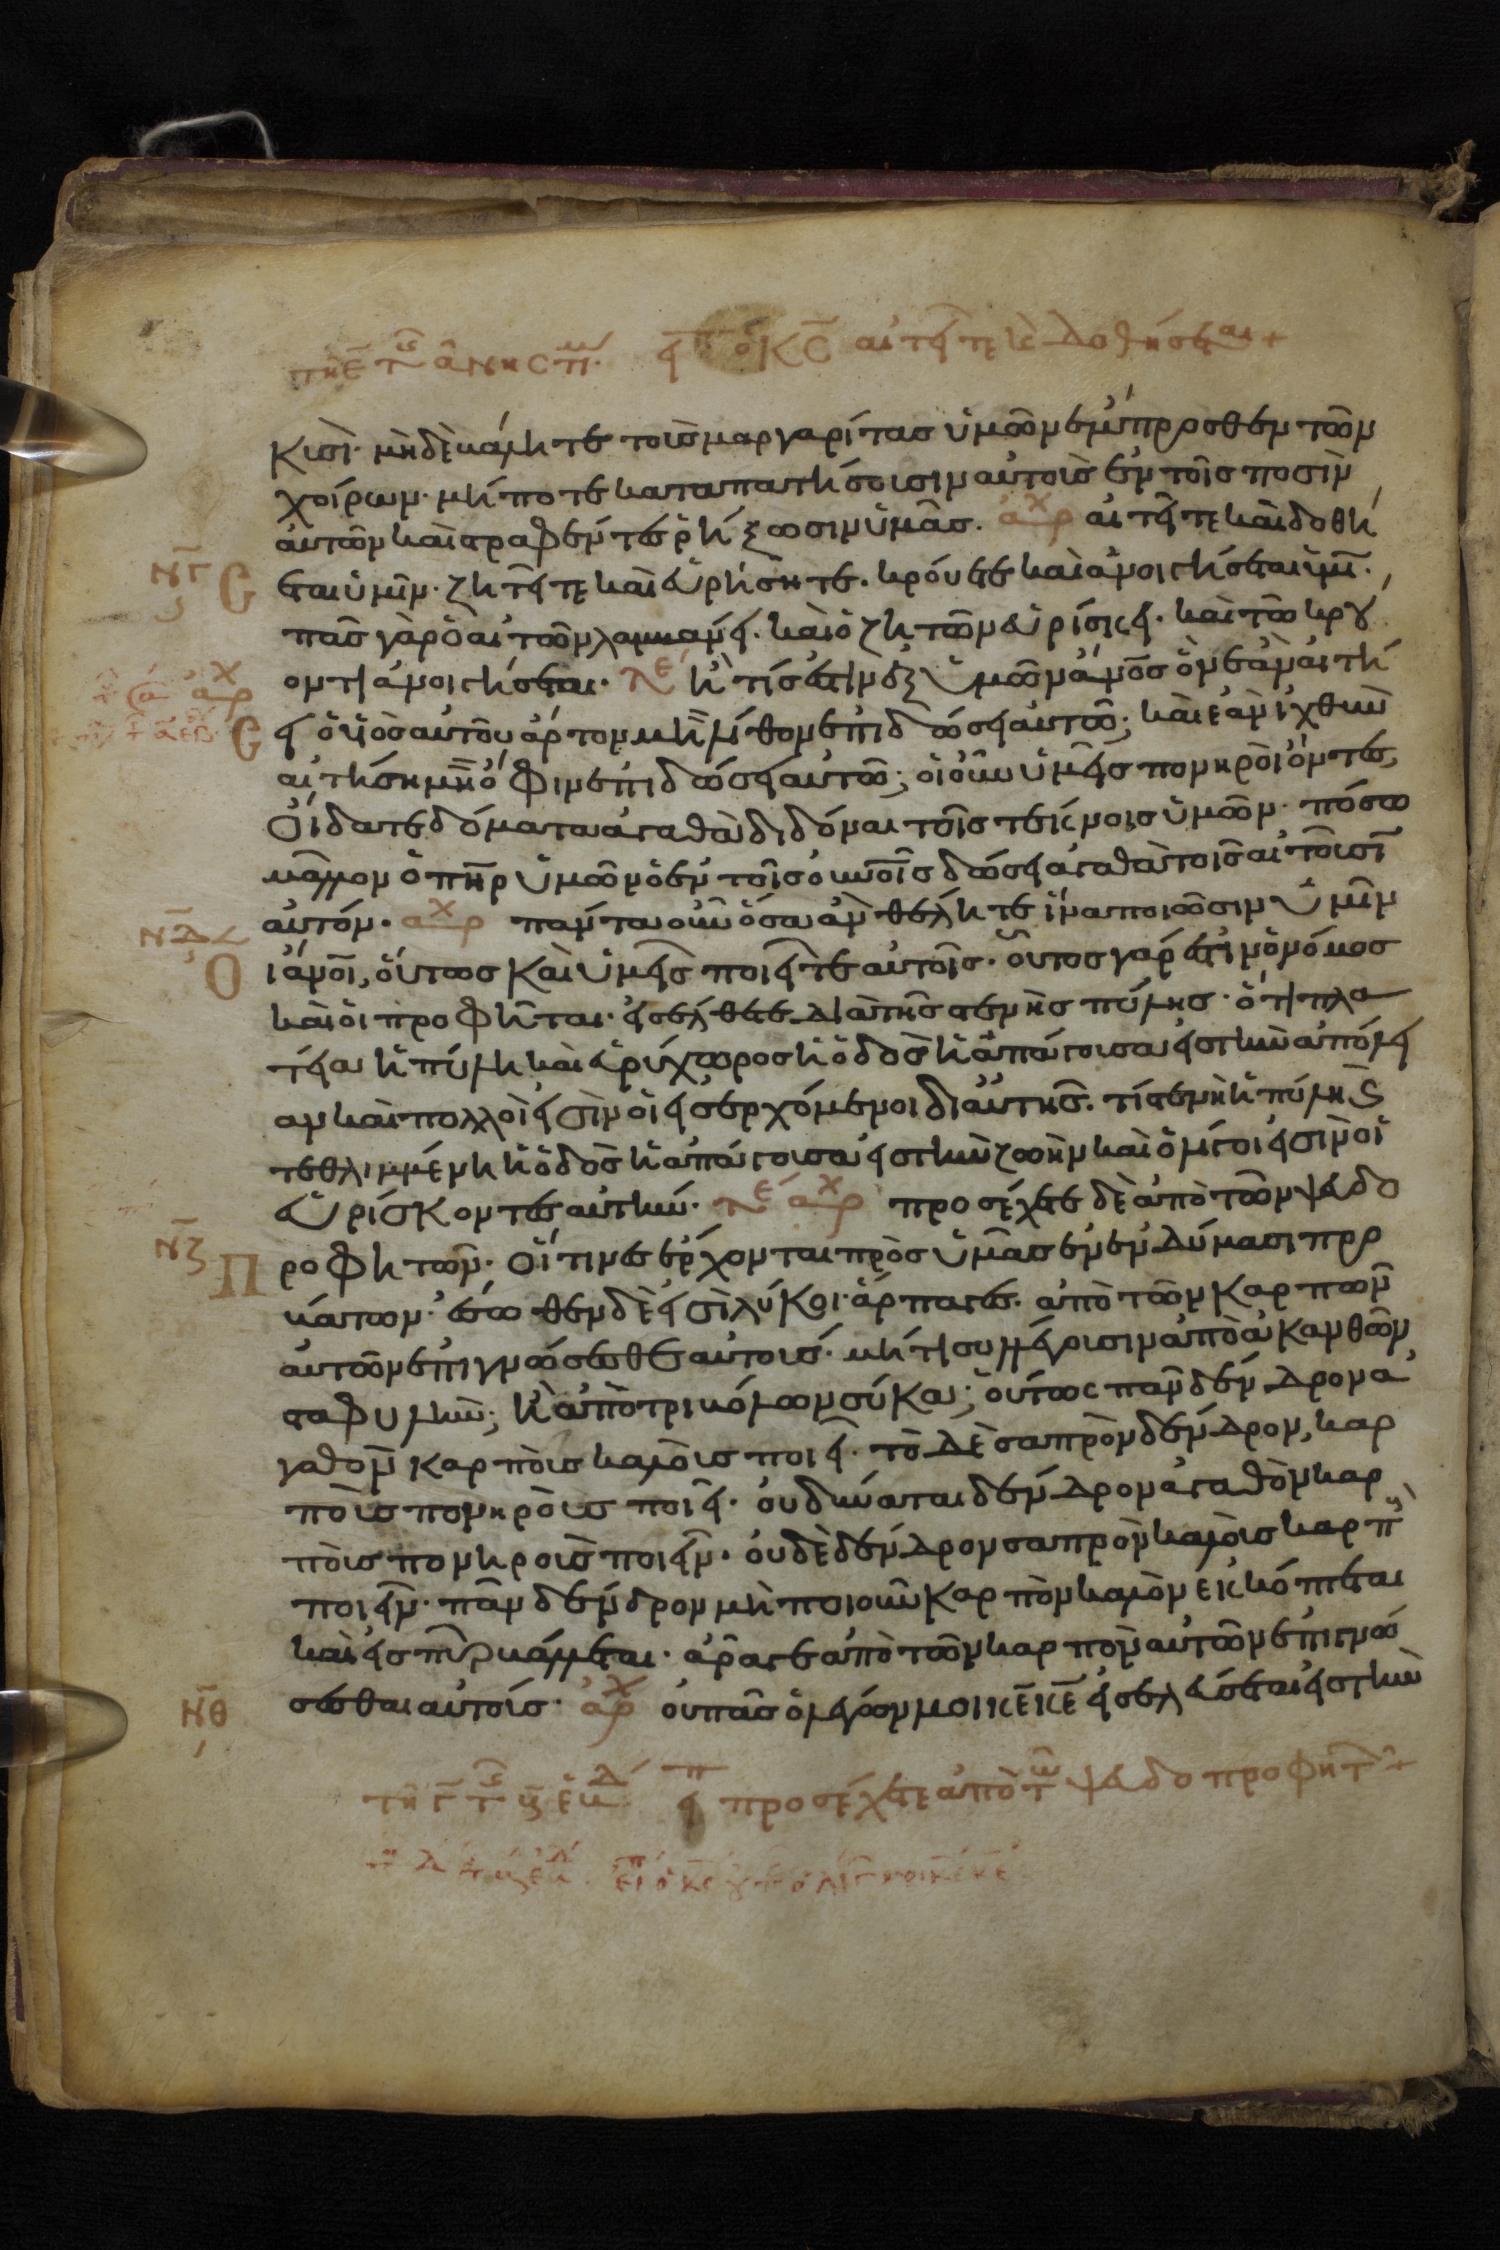 ὁ Κς αἰτεῖτε κ δοθήσεται +
κυσὶ· μὴδὲ βάλητε τοὺς μαργαρίτας ὑμῶν ἔμπροσθεν τῶν
χοίρων· μήποτε καταπατήσουσιν αὐτοὺς ἐν τοῖς ποσὶν
αὐτῶν καὶ στραφέντες ῥήξωσιν ὑμᾶς. ἀρχ αἰτεῖτε καὶ δοθή
σεται ὑμῖν· ζητεῖτε καὶ εὑρήσητε. κρούετε καὶ ἀνοιγήσεται ὑμῖν.
πᾶς γὰρ ὁ αἰτῶν λαμβάνει. καὶ ὁ ζητῶν εὑρίσκει. καὶ τῶ κρού
οντι ἀνοιγήσεται. ἢ τίς ἐστιν ἐξ ὑμῶν ἄνος ὃν ἐὰν αἰτή
ει ὁ υἱὸς αὐτοῦ ἄρτον μὴ λίθον ἐπιδώσει αὐτῶ; καὶ ἐὰν ἰχθὺν
αἰτήση μὴ ὄφιν ἐπιδώσει αὐτῶ; εἰ οὖν ὑμεῖς πονηροὶ ὄντες,
οἴδατε δόματα ἀγαθὰ διδόναι τοῖς τέκνοις ὑμῶν· πόσω
μᾶλλον ὁ πηρ ὑμῶν ὁ ἐν τοῖς οὐνοῖς δώσει ἀγαθὰ τοῖς αἰτοῦσιν
αὐτόν. ἀρχ πάντα οὖν ὅσα ἂν θέλητε ἵνα ποιῶσιν ὑμῖν
οἱ ἄνοι, οὕτως καὶ ὑμεῖς ποιεῖτε αὐτοῖς. οὗτος γάρ ἐστιν ὁ νόμος
καὶ οἱ προφῆται. εἰσέλθετε διὰ τῆς στενῆς πύλης· ὅτι πλα
τεῖα ἡ πύλη καὶ εὐρύχωρος ἡ ὁδὸς ἡ ἀπάγουσα εἰς τὴν ἀπώλει
αν καὶ πολλοὶ εἰσὶν οἱ εἰσερχόμενοι δι αὐτῆς. τί στενὴ ἡ πύλη κ
τεθλιμμένη ἡ ὁδὸς ἡ ἀπάγουσα εἰς τὴν ζωὴν καὶ ὀλίγοι εἰσὶν οἱ
εὑρίσκοντες αὐτὴν. ἀρχ προσέχετε δὲ ἀπὸ τῶν ψευδο
προφητῶν. οἵτινες ἔρχονται πρὸς ὑμᾶς ἐν ἐνδύμασι προ
βάτων. ἔσωθεν δὲ εἰσὶ λύκοι ἅρπαγες. ἀπὸ τῶν καρπῶν
αὐτῶν ἐπιγνώσεσθε αὐτούς. μήτι συλλέγουσιν ἀπὸ ἀκανθῶν
σταφυλὴν; ἢ ἀπὸ τριβόλων σύκα; οὕτως πᾶν δένδρον ἀ
γαθὸν καρποὺς καλοὺς ποιεῖ. τὸ δὲ σαπρὸν δένδρον, καρ
ποὺς πονηροὺς ποιεῖ. οὐ δύναται δένδρον ἀγαθὸν καρ
ποὺς πονηροὺς ποιεῖν. οὐδὲ δένδρον σαπρὸν καλοὺς καρπ
ποιεῖν. πᾶν δένδρον μὴ ποιοῦν καρπὸν καλὸν ἐκκόπτεται
καὶ εἰς πῦρ βάλλεται. ἄραγε ἀπὸ τῶν καρπὸν αὐτῶν ἐπιγνώ
σεσθαι αὐτούς. ἀρχ οὐ πᾶς ὁ λέγων μοι κε κε εἰσελεύσεται εἰς τὴν
προσέχετε ἀπὸ τ ψευδοπροφητ +